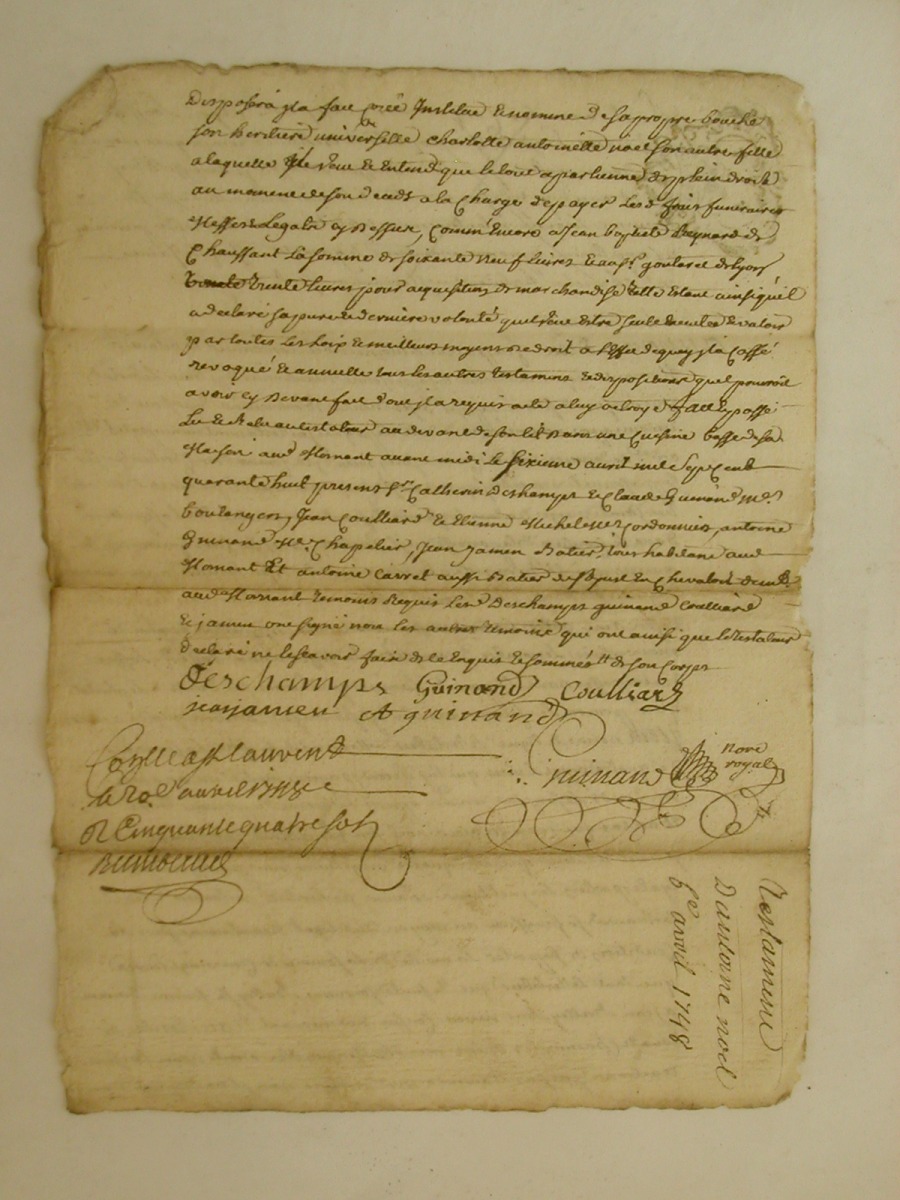 Disposera il a fait créé Institué & nommé de sa propre bouche
son heritiere universelle charlotte antoinette noel son autre fille
a laquelle il veut & Entend que le tout apartienne de plein droit
au moment de son deceds a la Charge de payer les d. frais funeraires
& Legats cy Dessus, comm'Encore a Jean baptiste Reynard de
Chaussant La somme de soixante Neuf Livres & goutaret de lyon
trente livres pour acquisition de marchandise telle Etant ainsi qu'il
a declaré sa pure & derniere volonté qu'il veut Estre Seule Executée & valoir
par toutes Les Loix & meilleurs moyens de droit a l'Effet de quoy il a Cassé
revoqué & annullé tous les autres testamens & dispositions qu'il pourroit
avoir cy Devant fait dont il a requis acte a luy octroyé fait & passé
Lu & Relu au testateur au devant de son lit Dans une Cuisine basse de sa
Maison aud. Mornant avant midi le sixieme avril mil Sept Cent
quarante huit presens Sr. Catherin deschamps & Claude Guinand Mes.
boulangers, Jean Coulliard & Etienne Michel Mes. Cordonniers, antoine
Guinand Me. Chapelier, Jean Jamen Batier, tous habitans aud.
Mornant Et antoine Carret aussi Batier de St Just En Chevalet demt.
aud. Mornant temoins Requis Les d. Deschamps guinand Coulliard
& jamen ont signé non les autres temoins qui ont ainsi que le testateur
declaré ne le scavoir faire de ce Enquis & sommés de son Corps
Deschamps Guinand Coulliard
jean jamen A guinand
Guinand nore royal
Conllé a St laurent
le avril 1748
R Cinquante quatre sols
Testament
D'antoine noel
6e avril 1748